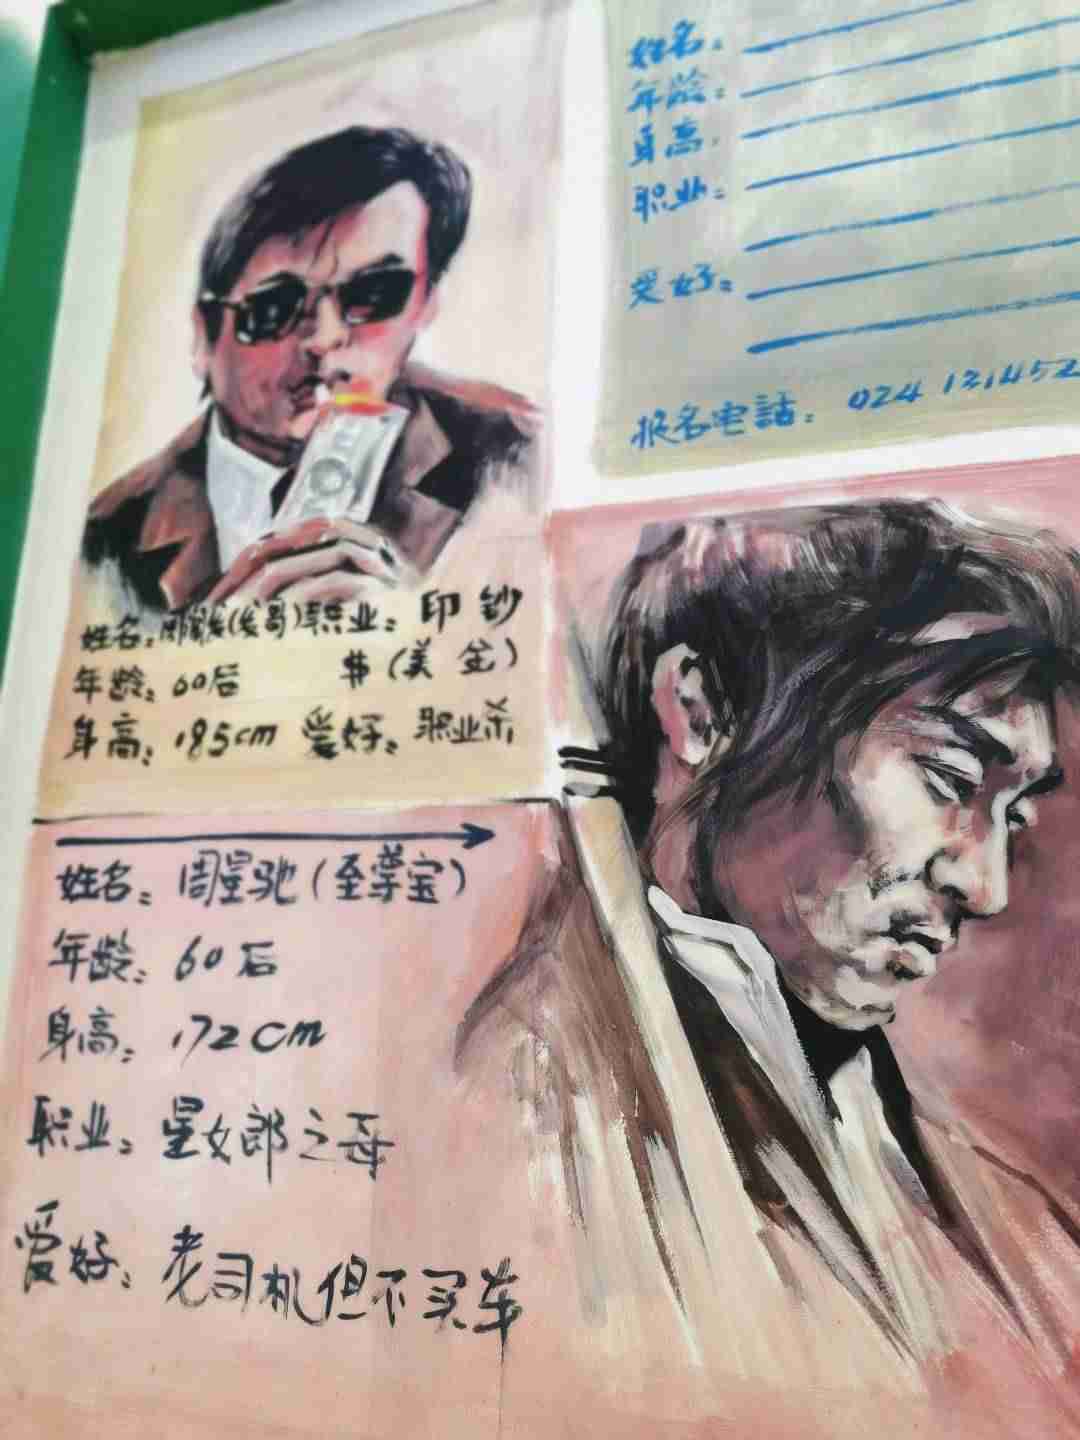 姓名：
年龄：
身高：
职业：
爱好：
报名电話：024 121452
姓名：周润发(发哥)职业：印钞
年龄：60后 $(美金)
身高：185cm 爱好：职业杀
姓名：周星驰(至尊宝)
年龄：60后
身高：172cm
职业：星女郎之母
爱好：老司机但不买车